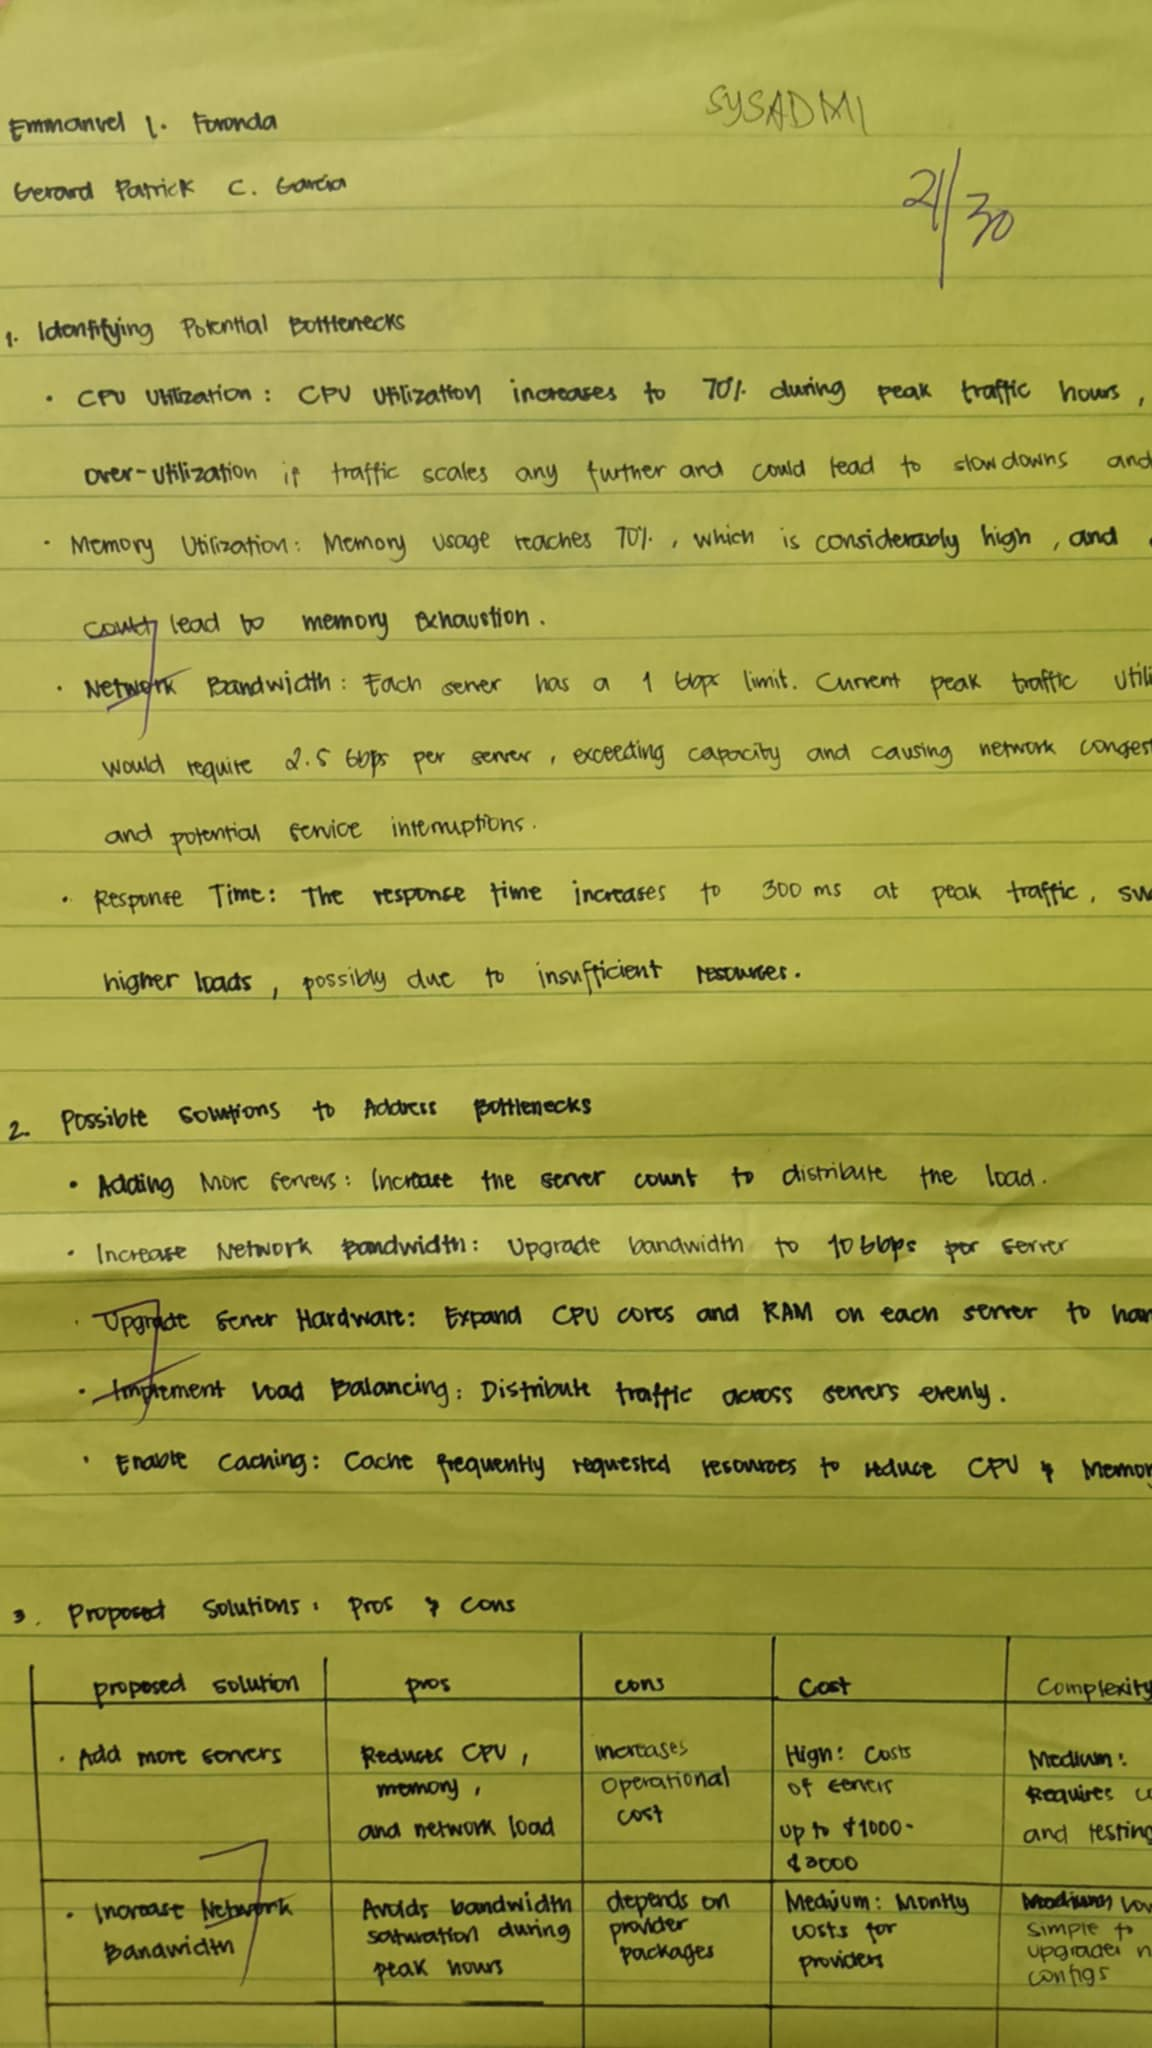 SYSADM1
Emmanuel I. Foronda
Gerard Patrick C. Garcia
21/30
1. Identifying Potential Bottlenecks
• CPU Utilization: CPU utilization increases to 70% during peak traffic hours,
over-utilization if traffic scales any further and could lead to slowdowns and
• Memory Utilization: Memory usage reaches 70%, which is considerably high, and
could lead to memory exhaustion.
7
• Network Bandwidth: Each server has a 1 Gbps limit. Current peak traffic utili
would require 2.5 Gbps per server, exceeding capacity and causing network congest
and potential service interruptions.
• Response Time: The response time increases to 300 ms at peak traffic, su
higher loads, possibly due to insufficient resources.
2. Possible Solutions to Address Bottlenecks
• Adding More Servers: Increase the server count to distribute the load.
• Increase Network Bandwidth: Upgrade bandwidth to 10 Gbps per server
• Upgrade Server Hardware: Expand CPU cores and RAM on each server to han
7
• Implement Load Balancing: Distribute traffic across servers evenly.
• Enable Caching: Cache frequently requested resources to reduce CPU & Memor
3. Proposed Solutions: Pros & Cons
proposed solution pros cons Cost Complexity
• Add more servers Reduces CPU, increases High: Costs Medium:
memory, operational of servers Requires
and network load cost up to $1000- and testing
$3000
7
• Increase Network Avoids bandwidth depends on Medium: Montly
Bandwidth saturation during provider costs for simple to
peak hours packages providers upgrade
configs